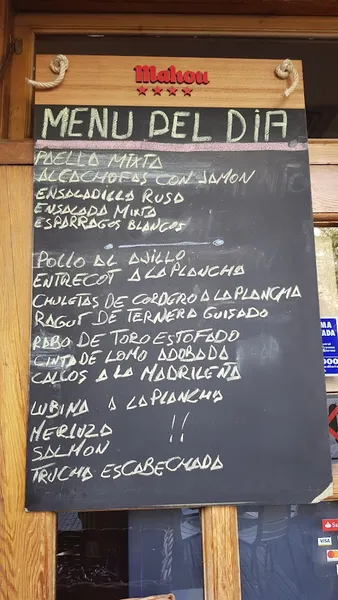 Mahou
MENU DEL DIA
PAELLA MIXTA
ALCACHOFAS CON JAMON
ENSALADILLA RUSA
ENSALADA MIXTA
ESPARRAGOS BLANCOS
POLLO AL AJILLO
ENTRECOT A LA PLANCHA
CHULETAS DE CORDERO A LA PLANCHA
RAGUT DE TERNERA GUISADO
RABO DE TORO ESTOFADO
CINTA DE LOMO ADOBADA
CALLOS A LA MADRILEÑA
LUBINA A LA PLANCHA
MERLUZA !!
SALMON
TRUCHA ESCABECHADA
VISA